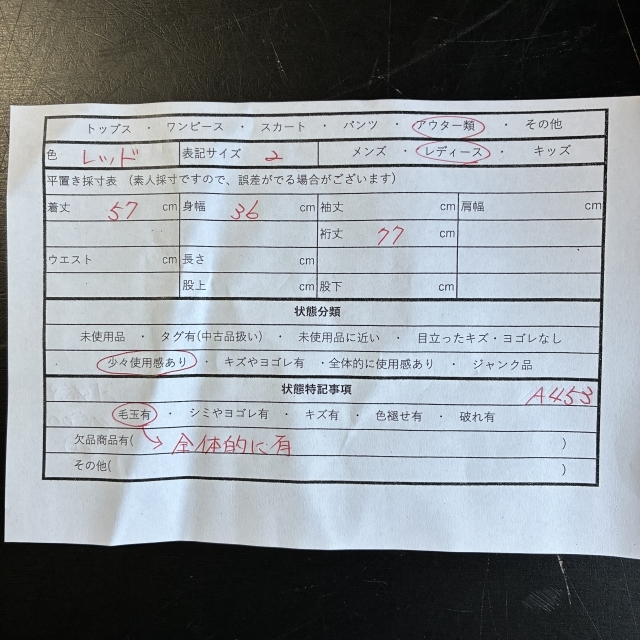 トップス ・ ワンピース ・ スカート ・ パンツ ・ アウター類 ・ その他
色 レッド 表記サイズ 2 メンズ ・ レディース ・ キッズ
平置き採寸表 (素人採寸ですので、誤差がでる場合がございます)
着丈 57 cm 身幅 36 cm 袖丈 cm 肩幅 cm
裄丈 77 cm
ウエスト cm 長さ cm
股上 cm 股下 cm
状態分類
未使用品 ・ タグ有(中古品扱い) ・ 未使用品に近い ・ 目立ったキズ・ヨゴレなし
・ 少々使用感あり ・ キズやヨゴレ有 ・全体的に使用感あり ・ ジャンク品
状態特記事項 A453
毛玉有 ・ シミやヨゴレ有 ・ キズ有 ・ 色褪せ有 ・ 破れ有
欠品商品有( → 全体的に有 )
その他( )